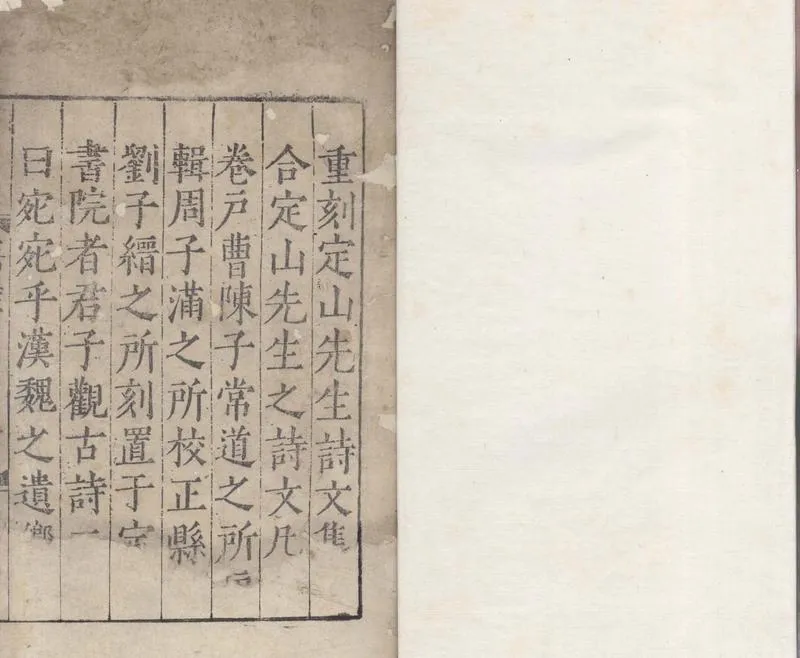 重刻定山先生詩文集
合定山先生之詩文凡
卷戸曹陳子常道之所
輯周子滿之所校正縣
劉子縉之所刻置于定
書院者君子觀古詩
曰宛宛乎漢魏之遺鄉